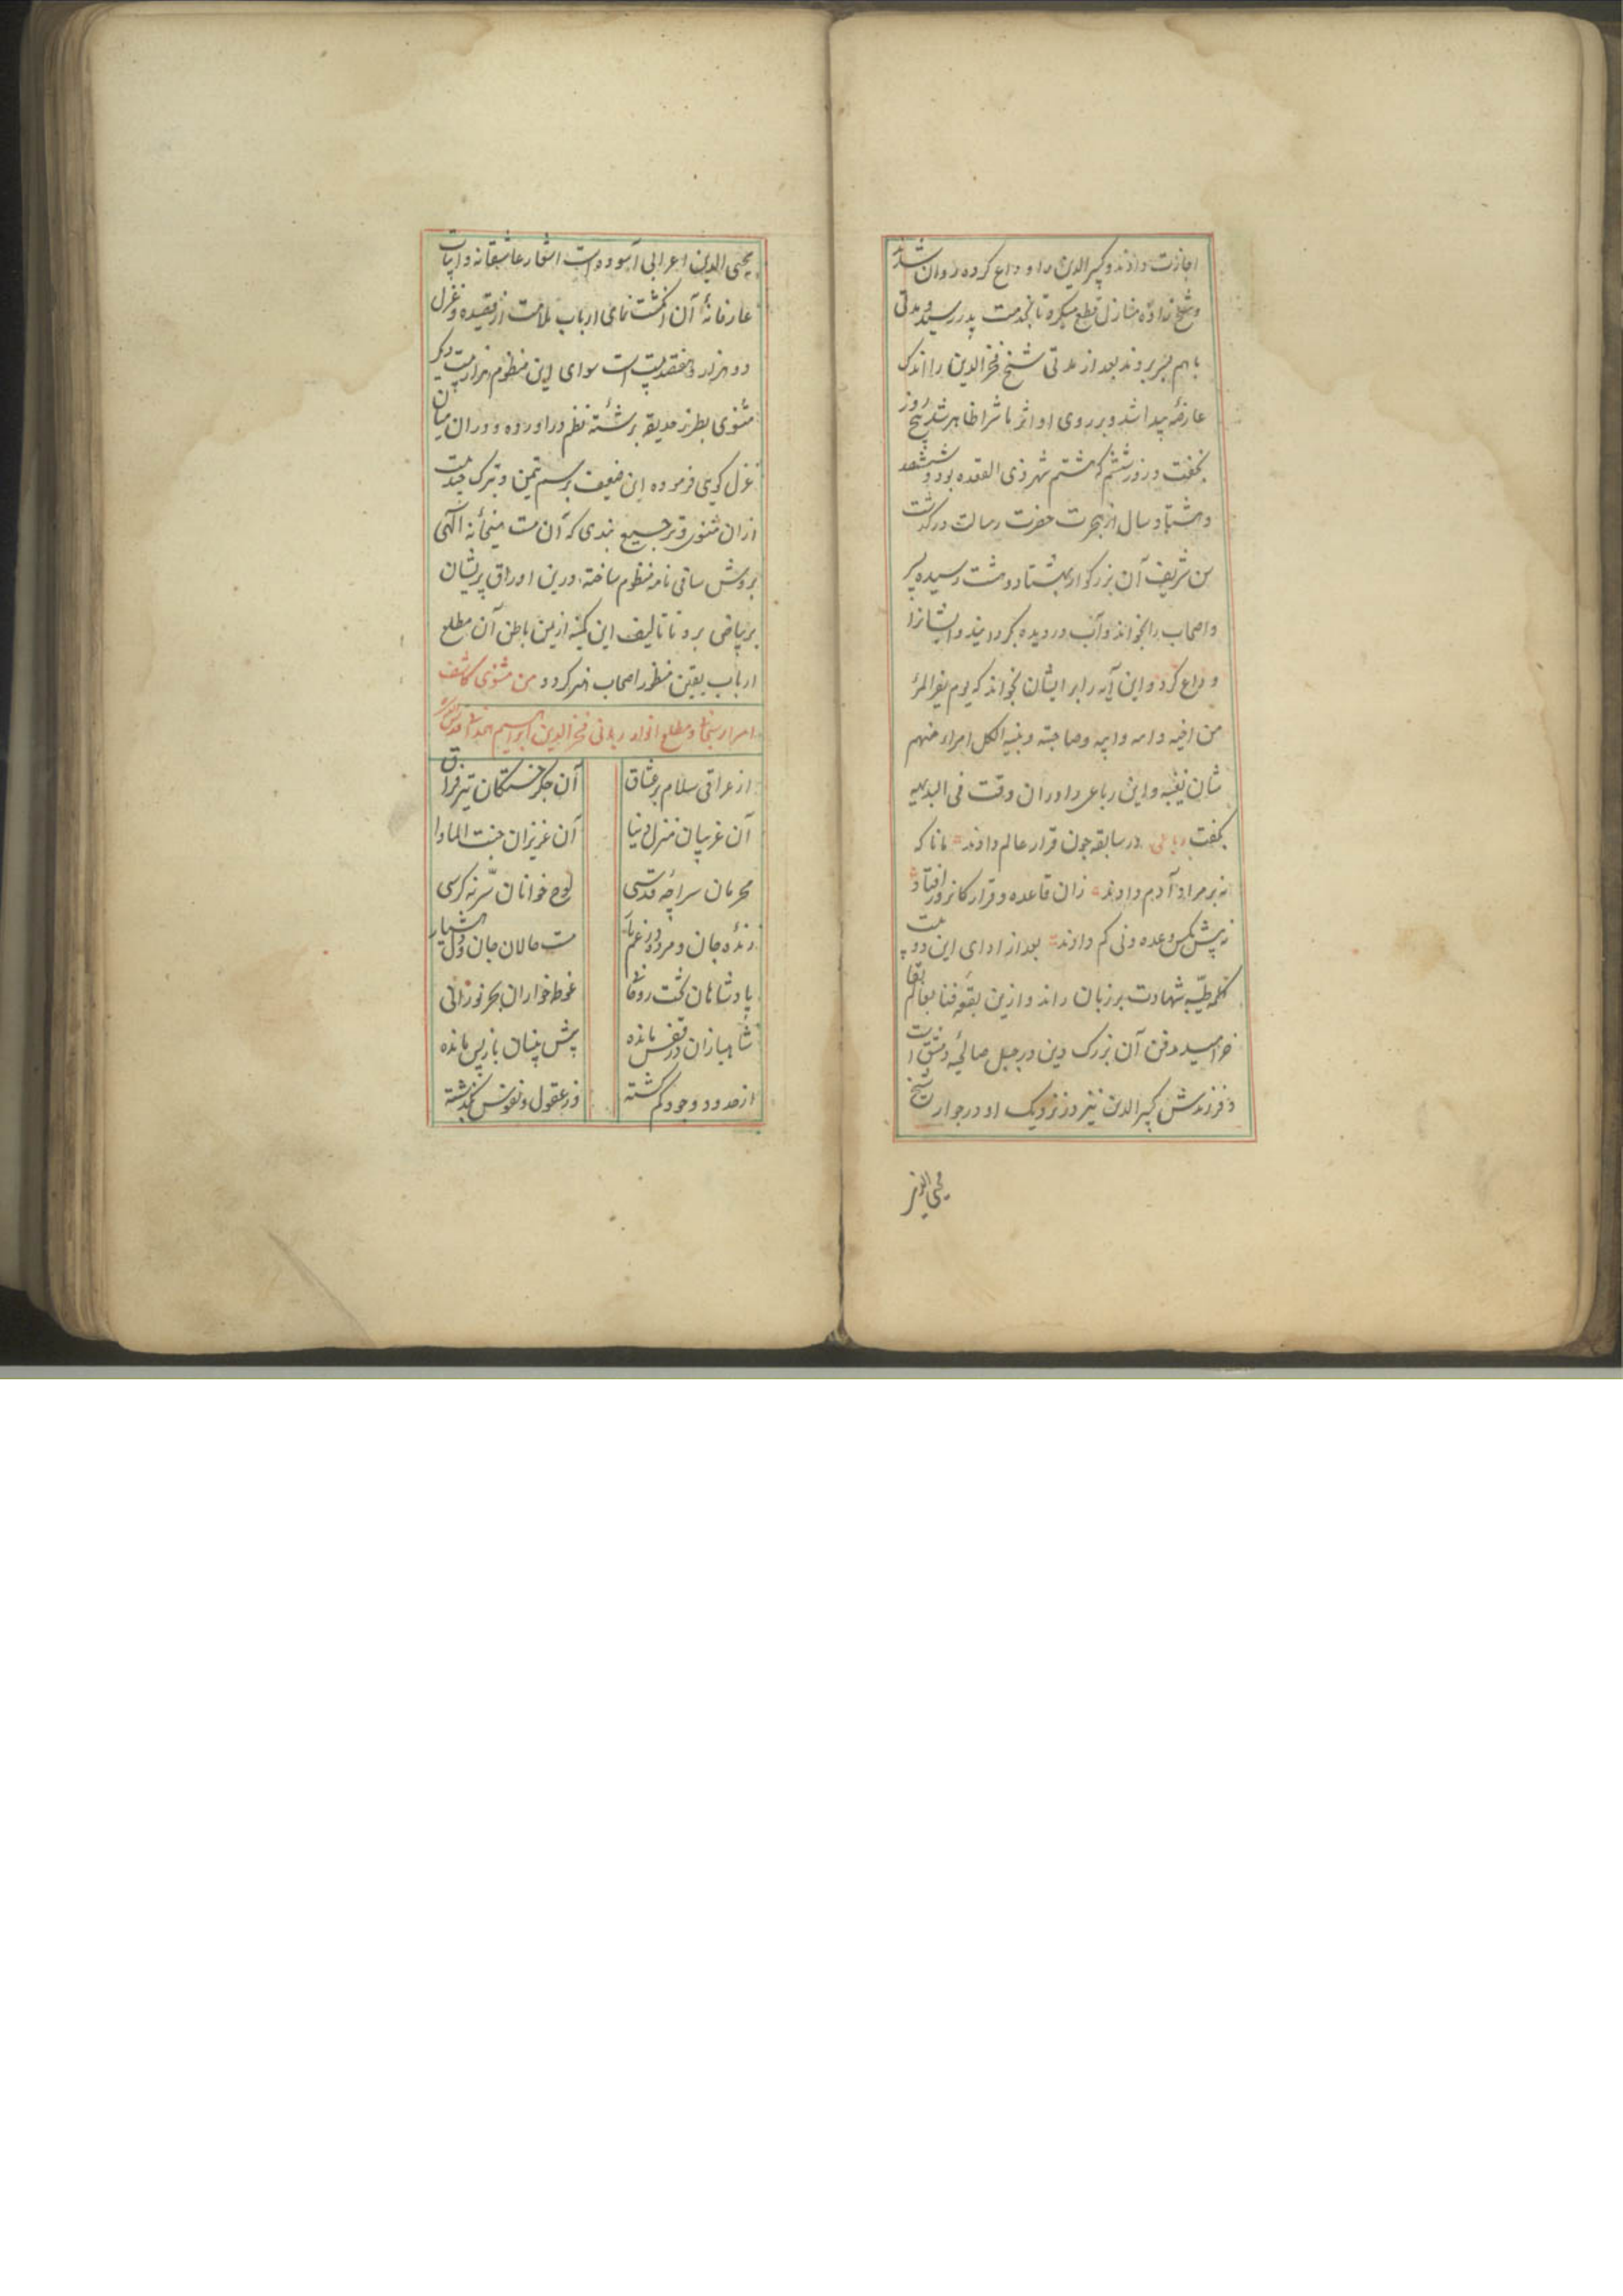 اجازت دادند و کبیرالدین را وداع کرده روان شدند
و شیخ زاده منازل قطع میکرد تا بخدمت پدر رسید و مدتی
با هم بسر بردند بعد از مدتی شیخ فخرالدین را اندک
عارضهٔ پیدا شد و بر روی او اثر ماشرا ظاهر شد پنج روز
بخفت و روز ششم که هشتم شهر ذی القعده بود و ششصد
و هشتاد سال از هجرت حضرت رسالت درگذشت
سن شریف آن بزرگوار بهشتاد و هشت رسیده پسر
و اصحاب را بخواند و آب در دیده بگردانید و ایشانرا
وداع کرد و این آیه را بر ایشان بخواند که یوم یفر المرء
من اخیه و امه و ابیه و صاحبته و بنیه لکل امرء منهم
شان یغنیه و این رباعی را در آن وقت فی البدیهه
بگفت رباعی در سابقه چون قرار عالم دادند مانا که
نه بر مراد آدم دادند زان قاعده و قرار کانروز افتاد
نه بیش بکس وعده و نی کم دادند بعد از ادای این دو بیت
کلمه طیبه شهادت بر زبان راند و ازین بقعه فنا بعالم بقا
خرامید مدفن آن بزرگ دین در جبل صالحیه دمشق است
و فرزندش کبیرالدین نیز در نزدیک او در جوار شیخ
محیی الدین
محیی الدین اعرابی آسوده است اشعار عاشقانه و ابیات
عارفانهٔ آن انگشت نمای ارباب ملامت از قصیده و غزل
دو هزار و هفتصد بیت است سوای این منظوم هزار بیت دیگر
مثنوی بطرز حدیقه برشتهٔ نظم درآورده و در آن میان
غزل گویی فرموده این ضعیف برسم تیمن و تبرک چند بیت
از آن مثنوی و ترجیع بندی که آن مست میخانهٔ الهی
بروش ساقی نامه منظوم ساخته درین اوراق پریشان
بر بیاض برد تا تالیف این کمینه از یمن باطن آن مطلع
ارباب یقین منظور اصحاب هنر گردد من مثنوی کاشف
اسرار سبحانی و مطلع انوار ربانی فخرالدین ابراهیم همدانی قدس سره
از عراقی سلام بر عشاق آن جگرخستگان تیر فراق
آن غریبان منزل دنیا آن عزیزان جنت الماوا
محرمان سراچه قدسی لوح خوانان سر نه کرسی
زنده جان و مرده در غم یار مست حالان جان و دل هشیار
پادشاهان تخت روحانی غوطه خواران بحر نورانی
شاهبازان در قفس مانده پیش بینان باز پس مانده
از حدود وجود گم گشته وز عقول و نفوس بگذشته